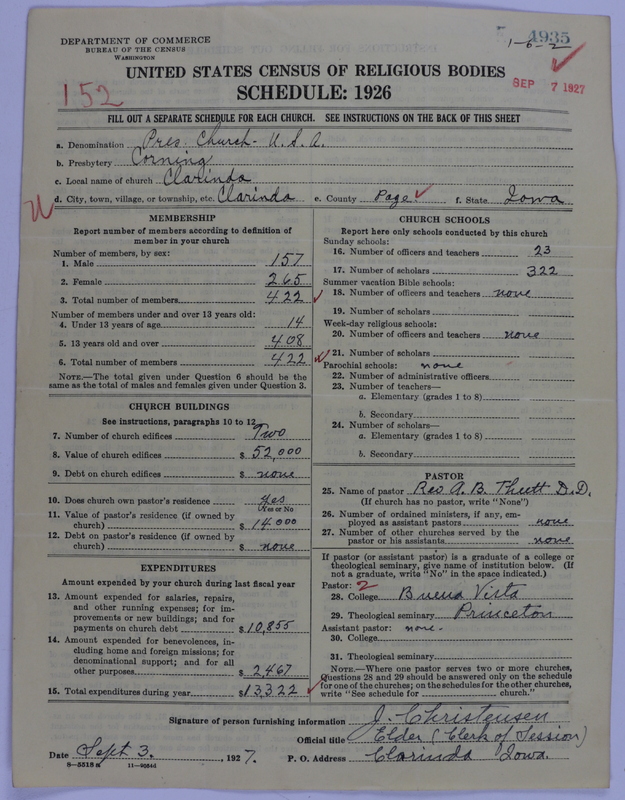 DEPARTMENT OF COMMERCE
BUREAU OF THE CENSUS
WASHINGTON
4935
1-6-2
SEP 7 1927
152
UNITED STATES CENSUS OF RELIGIOUS BODIES
SCHEDULE: 1926
FILL OUT A SEPARATE SCHEDULE FOR EACH CHURCH. SEE INSTRUCTIONS ON THE BACK OF THIS SHEET
a. Denomination Pres. Church - U.S.A.
b. Presbytery Corning
c. Local name of church Clarinda
d. City, town, village, or township, etc. Clarinda e. County Page f. State Iowa
MEMBERSHIP
Report number of members according to definition of
member in your church
Number of members, by sex:
1. Male 157
2. Female 265
3. Total number of members 422
Number of members under and over 13 years old:
4. Under 13 years of age 14
5. 13 years old and over 408
6. Total number of members 422
NOTE.—The total given under Question 6 should be
same as the total of males and females given under Question 3.
CHURCH BUILDINGS
See instructions, paragraphs 10 to 12
7. Number of church edifices Two
8. Value of church edifices $ 52,000
9. Debt on church edifices $ none
10. Does church own pastor's residence yes
(Yes or No)
11. Value of pastor's residence (if owned by
church) $ 14000
12. Debt on pastor's residence (if owned by
church) $ none
EXPENDITURES
Amount expended by your church during last fiscal year
13. Amount expended for salaries, repairs,
and other running expenses; for im-
provements or new buildings; and for
payments on church debt $ 10,855
14. Amount expended for benevolences, in-
cluding home and foreign missions; for
denominational support; and for all
other purposes $ 2,467
15. Total expenditures during year $ 13322
CHURCH SCHOOLS
Report here only schools conducted by this church
Sunday schools:
16. Number of officers and teachers 23
17. Number of scholars 322
Summer vacation Bible schools:
18. Number of officers and teachers none
19. Number of scholars
Week-day religious schools:
20. Number of officers and teachers none
21. Number of scholars
Parochial schools: none
22. Number of administrative officers
23. Number of teachers—
a. Elementary (grades 1 to 8)
b. Secondary
24. Number of scholars—
a. Elementary (grades 1 to 8)
b. Secondary
PASTOR
25. Name of pastor Rev A. B. D.D.
(If church has no pastor, write "None")
26. Number of ordained ministers, if any, em-
ployed as assistant pastors none
27. Number of other churches served by the
pastor or his assistants none
If pastor (or assistant pastor) is a graduate of a college or
theological seminary, give name of institution below. (If
not a graduate, write "No" in the space indicated.)
Pastor: 2
28. College Buena Vista
29. Theological seminary Princeton
Assistant pastor: none.
30. College
31. Theological seminary
NOTE.—Where one pastor serves two or more churches,
Questions 28 and 29 should be answered only on the schedule
for one of the churches; on the schedules for the other churches,
write "See schedule for church."
Signature of person furnishing information J. Christensen
Official title Elder (Clerk of Session)
Date Sept 3. , 1927. P. O. Address Clarinda Iowa.